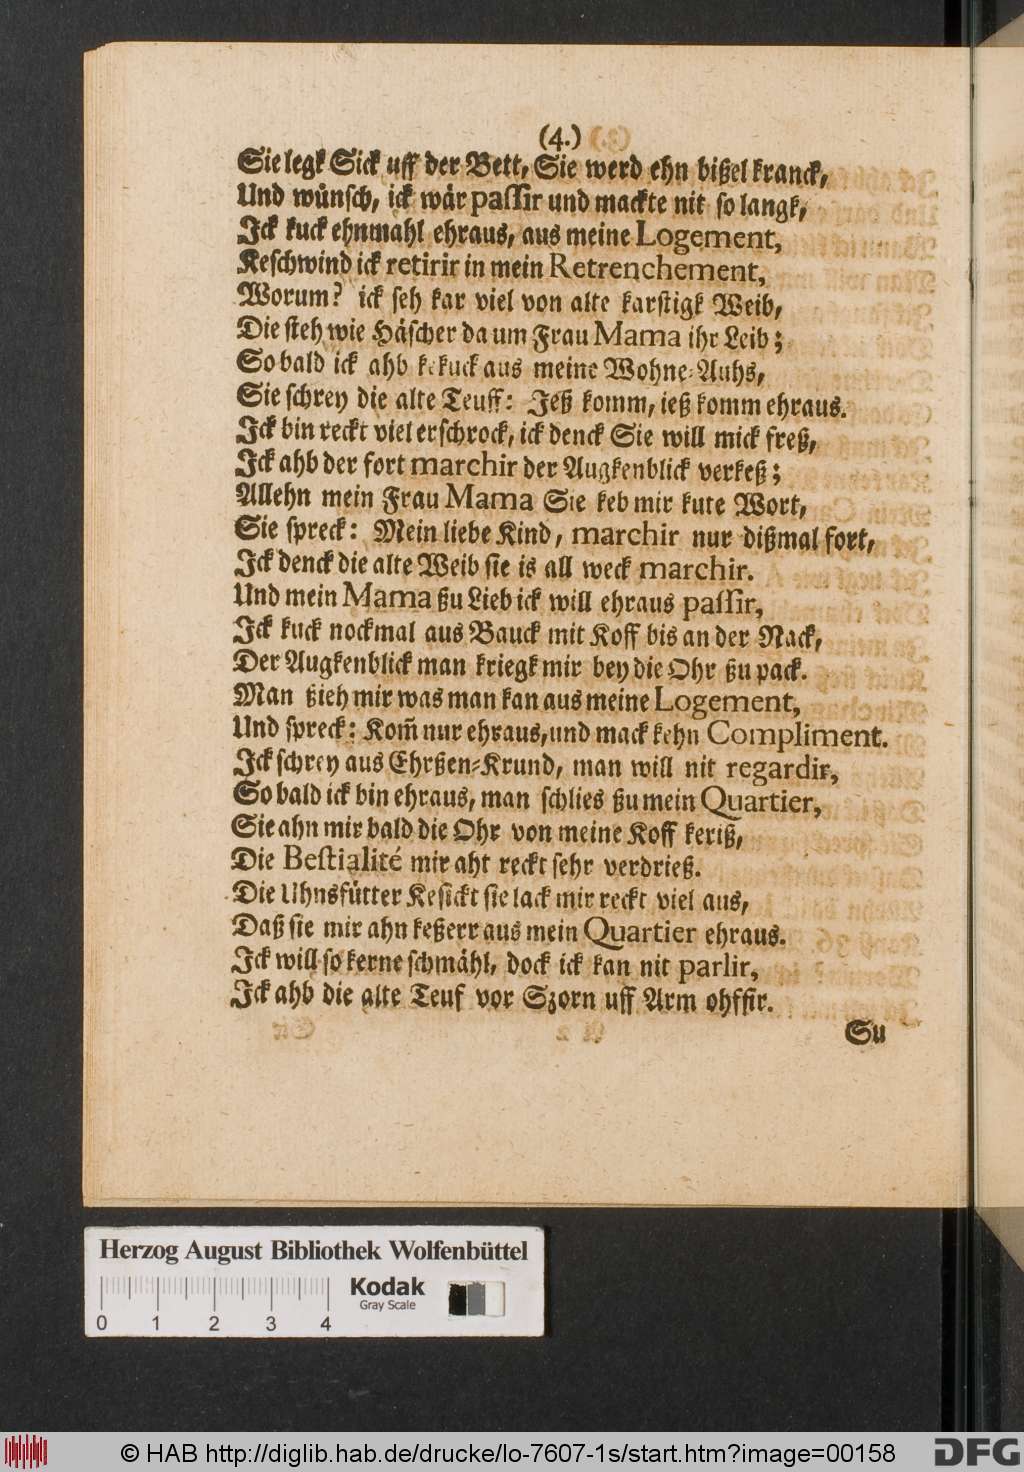 (4.)
Sie legk Sick uff der Bett, Sie werd ehn bißel kranck,
Und wůnsch, ick wär passir und mackte nit so langk,
Ick kuck ehnmahl ehraus, aus meine Logement,
Keschwind ick retirir in mein Retrenchement,
Worum? ick seh kar viel von alte karstigk Weib,
Die steh wie Häscher da um Frau Mama ihr Leib;
So bald ick ahb kekuck aus meine Wohne-Auhs,
Sie schrey die alte Teuff: Jeß komm, ieß komm ehraus.
Ick bin reckt viel erschrock, ick denck Sie will mick freß,
Ick ahb der fort marchir der Augkenblick verkeß;
Allehn mein Frau Mama Sie keb mir kute Wort,
Sie spreck: Mein liebe Kind, marchir nur dißmal fort,
Ick denck die alte Weib sie is all weck marchir.
Und mein Mama ßu Lieb ick will ehraus passir,
Ick kuck nockmal aus Bauck mit Koff bis an der Nack,
Der Augkenblick man kriegk mir bey die Ohr ßu pack.
Man ßieh mir was man kan aus meine Logement,
Und spreck: Kom̃ nur ehraus, und mack kehn Compliment.
Ick schrey aus Ehrßen-Krund, man will nit regardir,
So bald ick bin ehraus, man schlies ßu mein Quartier,
Sie ahn mir bald die Ohr von meine Koff keriß,
Die Bestialité mir aht reckt sehr verdrieß.
Die Uhnsfütter Kesickt sie lack mir reckt viel aus,
Daß sie mir ahn keßerr aus mein Quartier ehraus.
Ick will so kerne schmähl, dock ick kan nit parlir,
Ick ahb die alte Teuf vor Szorn uff Arm ohffir.
Su
Herzog August Bibliothek Wolfenbüttel
Kodak
Gray Scale
0 1 2 3 4
© HAB http://diglib.hab.de/drucke/lo-7607-1s/start.htm?image=00158
DFG